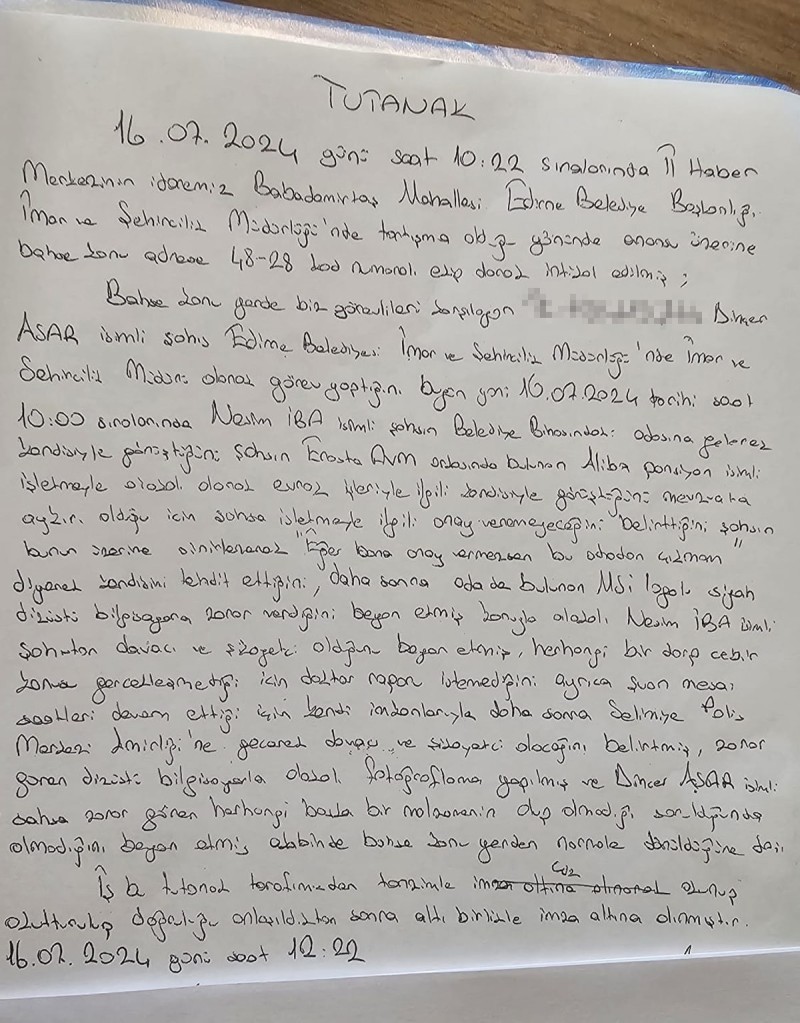 TUTANAK
16.07.2024 günü saat 10:22 sıralarında İl Haber
Merkezinin idaremiz Babademirtaş Mahallesi Edirne Belediye Başkanlığı
İmar ve Şehircilik Müdürlüğü'nde tartışma olduğu yönünde anonsu üzerine
bahse konu adrese 48-28 kod numaralı ekip olarak intikal edilmiş;
Bahse konu yerde biz görevlileri karşılayan Dinçer
AŞAR isimli şahıs Edirne Belediyesi İmar ve Şehircilik Müdürlüğü'nde İmar ve
Şehircilik Müdürü olarak görev yaptığını beyan 16.07.2024 tarihi saat
10:00 sıralarında Nesim İBA isimli şahsın Belediye Binasındaki odasına gelerek
kendisiyle görüştüğünü şahsın Erasta Avm arkasında bulunan Aliba pansiyon isimli
işletmeyle alakalı olarak evrak işleriyle ilgili kendisiyle görüştüğünü mevzuata
aykırı olduğu için şahsa işletmeyle ilgili onay veremeyeceğini belirttiğini şahsın
bunun üzerine sinirlenerek "Eğer bana onay vermezsen bu odadan çıkmam"
diyerek kendisini tehdit ettiğini, daha sonra odada bulunan MSi logolu siyah
dizüstü bilgisayara zarar verdiğini beyan etmiş konuyla alakalı Nesim İBA isimli
şahıstan davacı ve şikayetçi olduğunu beyan etmiş, herhangi bir darp cebir
konusu gerçekleşmediği için doktor raporu istemediğini ayrıca şuan mesai
saatleri devam ettiği için kendi imkanlarıyla daha sonra Selimiye Polis
Merkezi Amirliği'ne geçerek davacı ve şikayetçi olacağını belirtmiş, zarar
gören dizüstü bilgisayarla alakalı fotoğraflama yapılmış ve Dinçer AŞAR isimli
şahsa zarar gören herhangi başka bir malzemenin olup olmadığı sorulduğunda
olmadığını beyan etmiş akabinde bahse konu yerden normale dönüldüğüne dair
İş bu tutanak tarafımızdan tanzimle imza altına alınarak okunup
okutturulup doğruluğu anlaşıldıktan sonra altı birlikte imza altına alınmıştır.
16.07.2024 günü saat 12:22